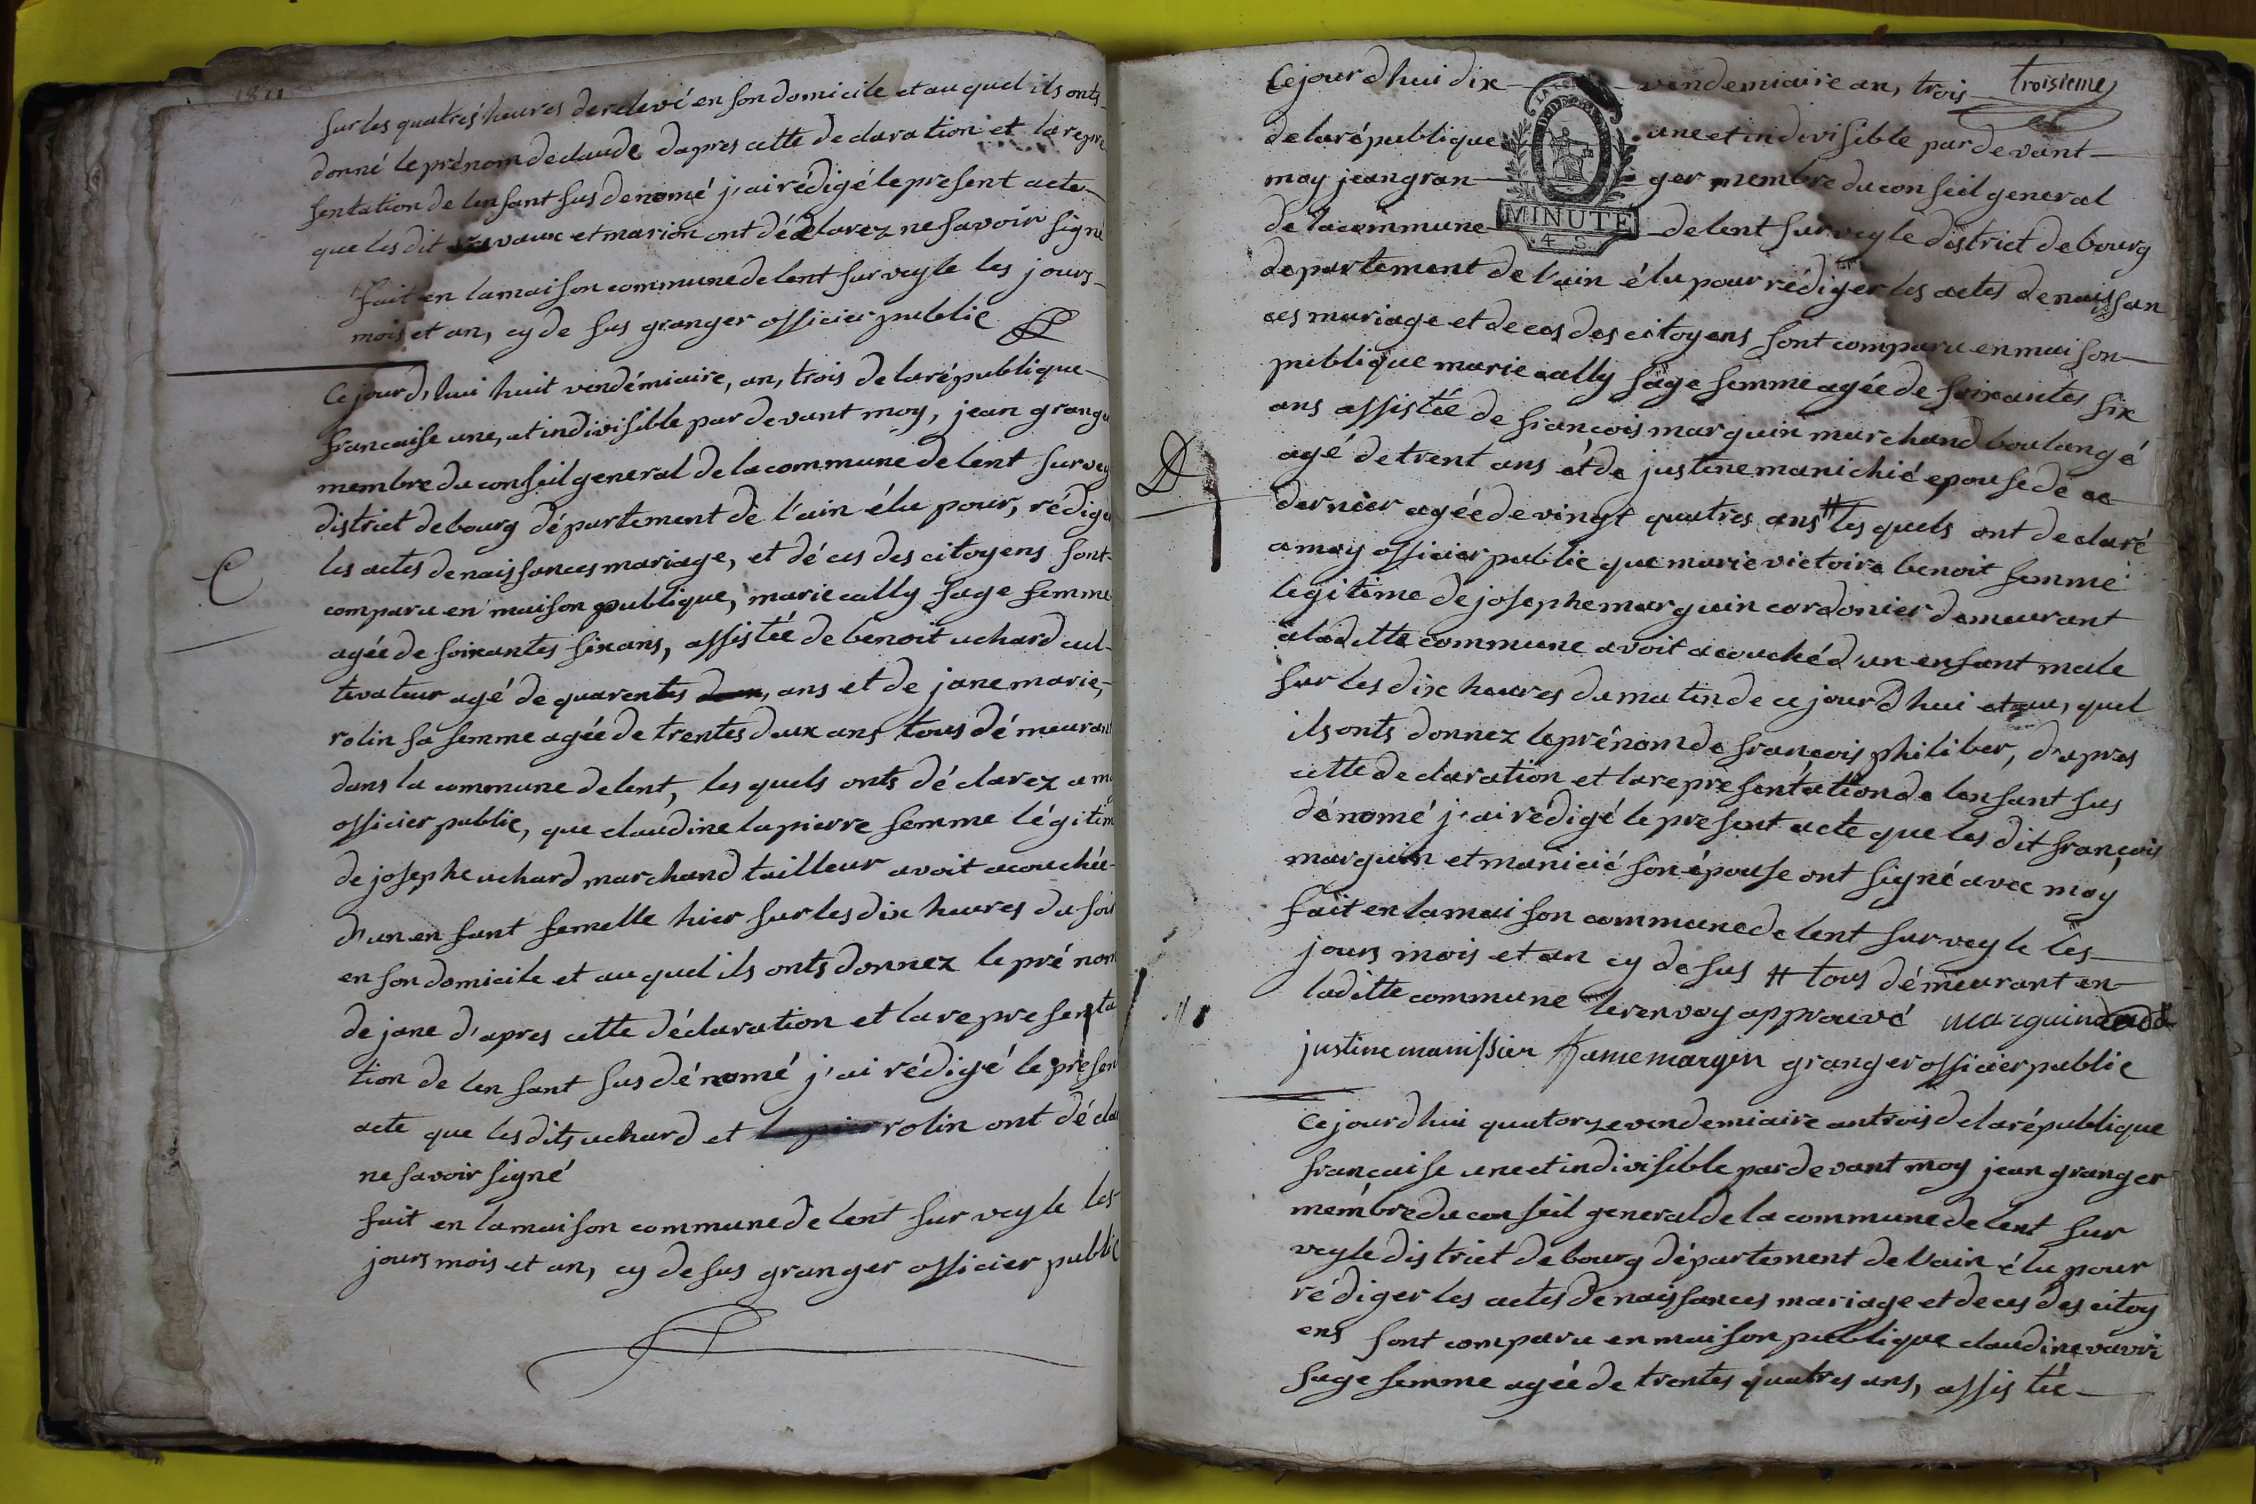 sur les quatres heures de relevé en son domicile et au quel ils onts
donné le prénom de claude dapres cette declaration et la repre
sentation de lenfant sus denomé j'ai rédigé le present acte
que les dit vaux et marion ont déclarez ne savoir signé
fait en la maison commune de lent sur veyle les jours
mois et an, cy de sus granger officier public
Ce jourd'hui huit vendémiaire, an, trois de la république
francaise une, et indivisible par devant moy, jean grange
membre du conseil general de la commune de lent sur vey
district de bourg département de l'ain élu pour, rédige
C
les actes de naissances mariage, et déces des citoyens sont
comparu en maison publique, marie cally sage femme
agée de soixantes six ans, assistée de benoit uchard cul-
tivateur agé de quarentes ans et de jane marie,
rolin sa femme agée de trentes deux ans tous démeurant
dans la commune de lent, les quels onts déclarez a m
officier public, que claudine lapierre femme légitim
de josephe uchard marchand tailleur avoit acouchée
d'un enfant femelle hier sur les dix heures du soir
en son domicile et au quel ils onts donnez le prénom
de jane d'apres cette déclaration et la representa
tion de lenfant sus dénomé j'ai rédigé le presen
acte que les dits uchard et rolin ont décla
ne savoir signé
fait en la maison commune de lent sur veyle les
jours mois et an, cy desus granger officier public
troisieme
Ce jourd'hui dix vendemiaire an, trois
de la république une et indivisible par devant
moy jean gran ger membre du conseil general
MINUTE
4 S
de la commune de lent sur veyle district de bourg
departement de l'ain élu pour rédiger les actes de naissan
ces mariage et deces des citoyens sont comparu en maison
publique marie cally sage femme agée de soixantes six
ans assistée de françois marguin marchand boulangé
D
agé de trent ans et de justine manichié epouse de ce
dernier agée de vingt quatres ans # les quels ont declaré
a moy officier public que marie victoire benoit femme
legitime de josephe marguin cordonier demeurant
a la ditte commune avoit acouché d'un enfant male
sur les dix heures du matin de ce jourd'hui et au, quel
ils onts donnez le prénom de françois philiber, d'apres
cette declaration et la representation de lenfant sus
dénomé j'ai rédigé le present acte que les dit françois
marguin et manicié son épouse ont signé avec moy
fait en la maison commune de lent sur veyle les
jours mois et an cy desus # tous démeurant en
la ditte commune le renvoy approuvé marguin
justine manissier granger officier public
Ce jourd'hui quatorze vendemiaire an trois de la république
française une et indivisible par devant moy jean granger
membre du conseil general de la commune de lent sur
veyle district de bourg département de l'ain élu pour
rédiger les actes de naissances mariage et deces des citoy
ens sont comparu en maison publique claudine vavri
sage femme agée de trentes quatres ans, assistée